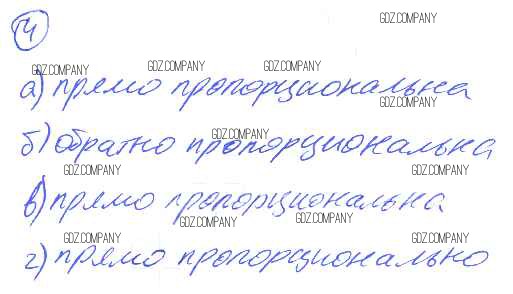 14
GDZ.COMPANY
GDZ.COMPANY GDZ.COMPANY GDZ.COMPANY
а) прямо пропорциональна
GDZ.COMPANY
GDZ.COMPANY
б) обратно пропорциональна
GDZ.COMPANY GDZ.COMPANY
в) прямо пропорциональна
GDZ.COMPANY GDZ.COMPANY
GDZ.COMPANY GDZ.COMPANY
г) прямо пропорционально